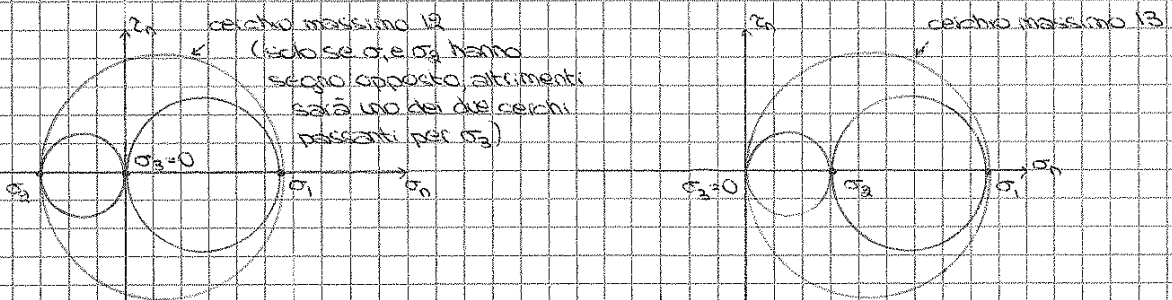 τn
cerchio massimo 12
(solo se σ1 e σ2 hanno
segno opposto, altrimenti
sarà uno dei due cerchi
passanti per σ3)
σ3=0
σ2
σ1
σn
τn
cerchio massimo 13
σ3=0
σ2
σ1
σn